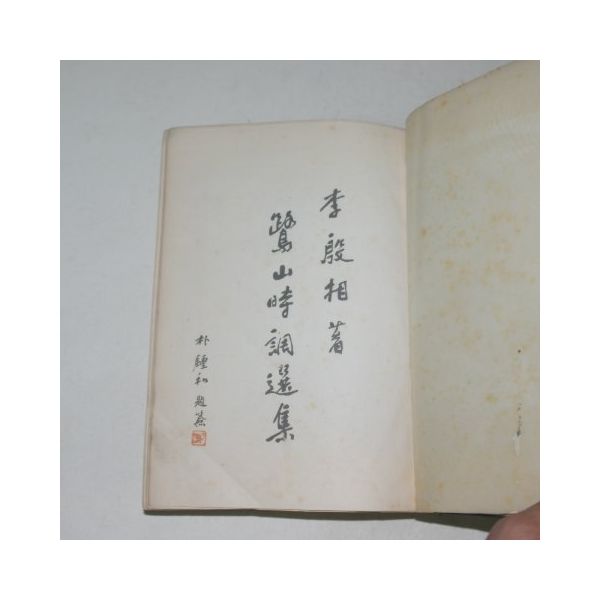 李殷相著
鷺山時調選集
朴鍾和題簽